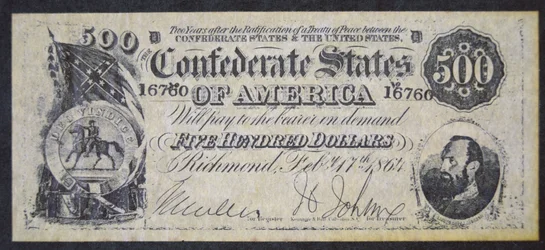 Two Years after the Ratification of a Treaty of Peace between the
CONFEDERATE STATES & THE UNITED STATES.
500
THE
Confederate States
500
16760
OF AMERICA
16760
Will pay to the bearer on demand
DEO VINDICE
FIVE HUNDRED DOLLARS
Richmond, Feb. 17th, 1864
for Register
for Treasurer